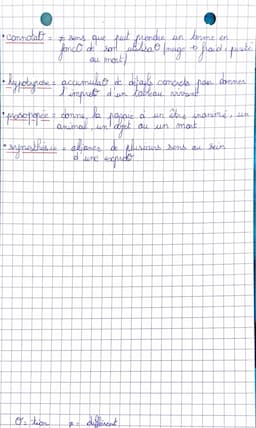 • connotat° = ≠ sens que peut prendre un terme en
fonct° de son utilisat° (neige → froid, pureté
ou mort)
• hypotypose = accumulat° de détails concrets pour donner
l'impress° d'un tableau vivant
• prosopopée = donne la parole à un être inanimé, un
animal, un objet ou un mort
• synesthésie = alliance de plusieurs sens au sein
d'une express°
O = tion ≠ = différent